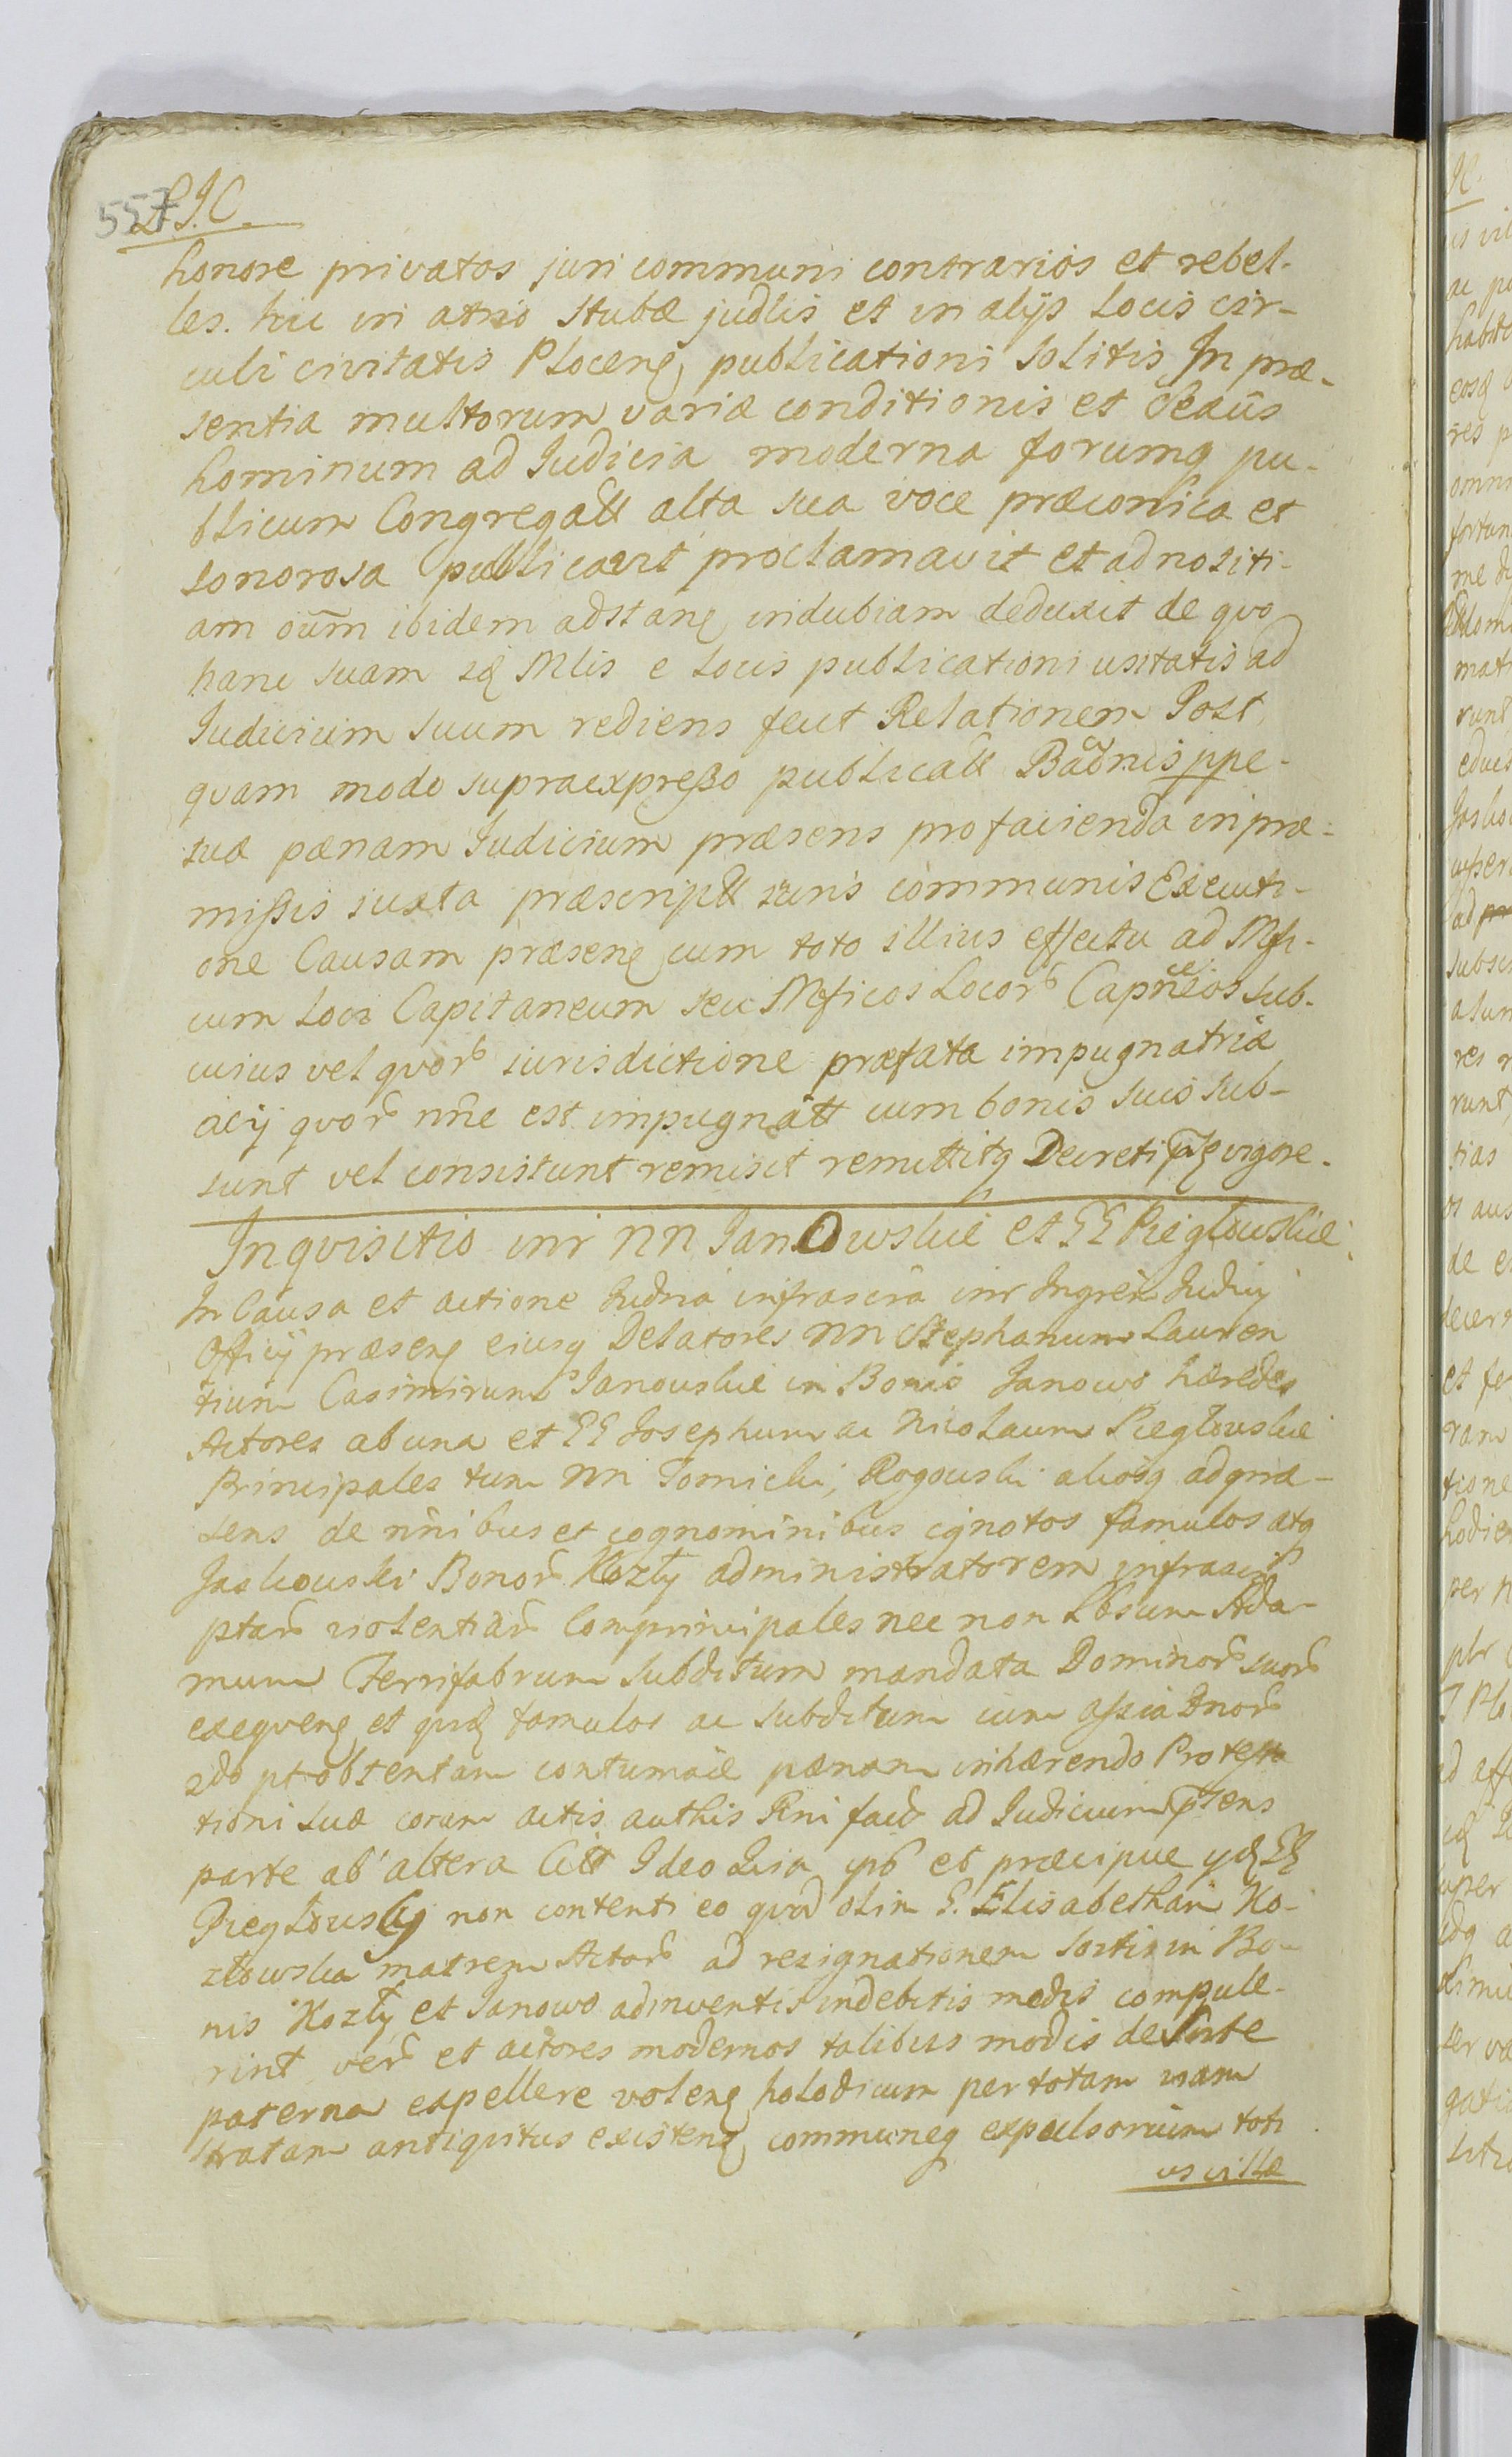 557
L.J.C.
honore privatos juri communi contrarios et rebel-
les. hic in atrio stubæ judlis et in alijs locis cir-
culi civitatis Plocenę publicationi solitis In præ-
sentia multorum variæ conditionis et
hominum ad Iudicia moderna forumq pu-
blicum Congregatt alta sua voce præconica et
sonorosa publicavit proclamavit et ad notiti-
am oūm ibidem adstanę indubiam deduxit de quo
hanc suam idę Mlis e locis publicationi usitatis ad
Iudicium suum rediens fecit Relationem Post
quam modo supraexpresso publicatt Bannis ppe-
tuæ pænam Iudicium præsens pro facienda in præ-
missis iuxta præscriptt iuris communis Executi-
one Causam præsenę cum toto illius effectu ad Mfi-
cum loci Capitaneum seu Mficos Locor Capneos sub-
cuius vel quor iurisdictione præfata impugnatriæ
acij quor nne est impugnatt cum bonis suis sub-
sunt vel consistunt remisit remittitq Decreti ptę vigore.
Inquisitio inr NN Janowskie et GG Pięgłowskie
In Causa et actione Iudria infrascra inr Ingren Iudicij
Officij præsenę eiusq Delatores NN Stephanum Lauren
tium Casimirum Janowskie in Bonis Janowo hæredes
Actores ab una et GG Josephum ac Nicolaum Pięgłowskie
Principales tum NN Tomicki, Rogowski aliosq ad præ-
sens de nnibus et cognominibus ignotos famulos atq
Jaskowski Bonor Kozły administratorem infrascri
ptar violentiar Comprincipales nec non Lbsum Ada-
mum Ferrifabrum subditum mandata Dominor suor
exequenę et quidę famulos ac subditum cum assia Dnor
2do pt obtentam contumaciæ pænam inhærendo Protesta
tioni suæ coram actis authis Pni fact ad Iudicium ptens
parte ab altera Citt Ideo Quia ipsi et præcipue ydę GG
Pięgłowscy non contenti eo quod olim G. Elisabetham Ko-
złowska matrem Actor ad resignationem sortis in Bo-
nis Kozły et Janowo adinventis indebitis modis compule-
rint ver et actores modernos talibus modis de sorte
paterna expellere volenę holodicum per totam viam
stratam antiquitus existenę communeq expulsorium toti
us villæ